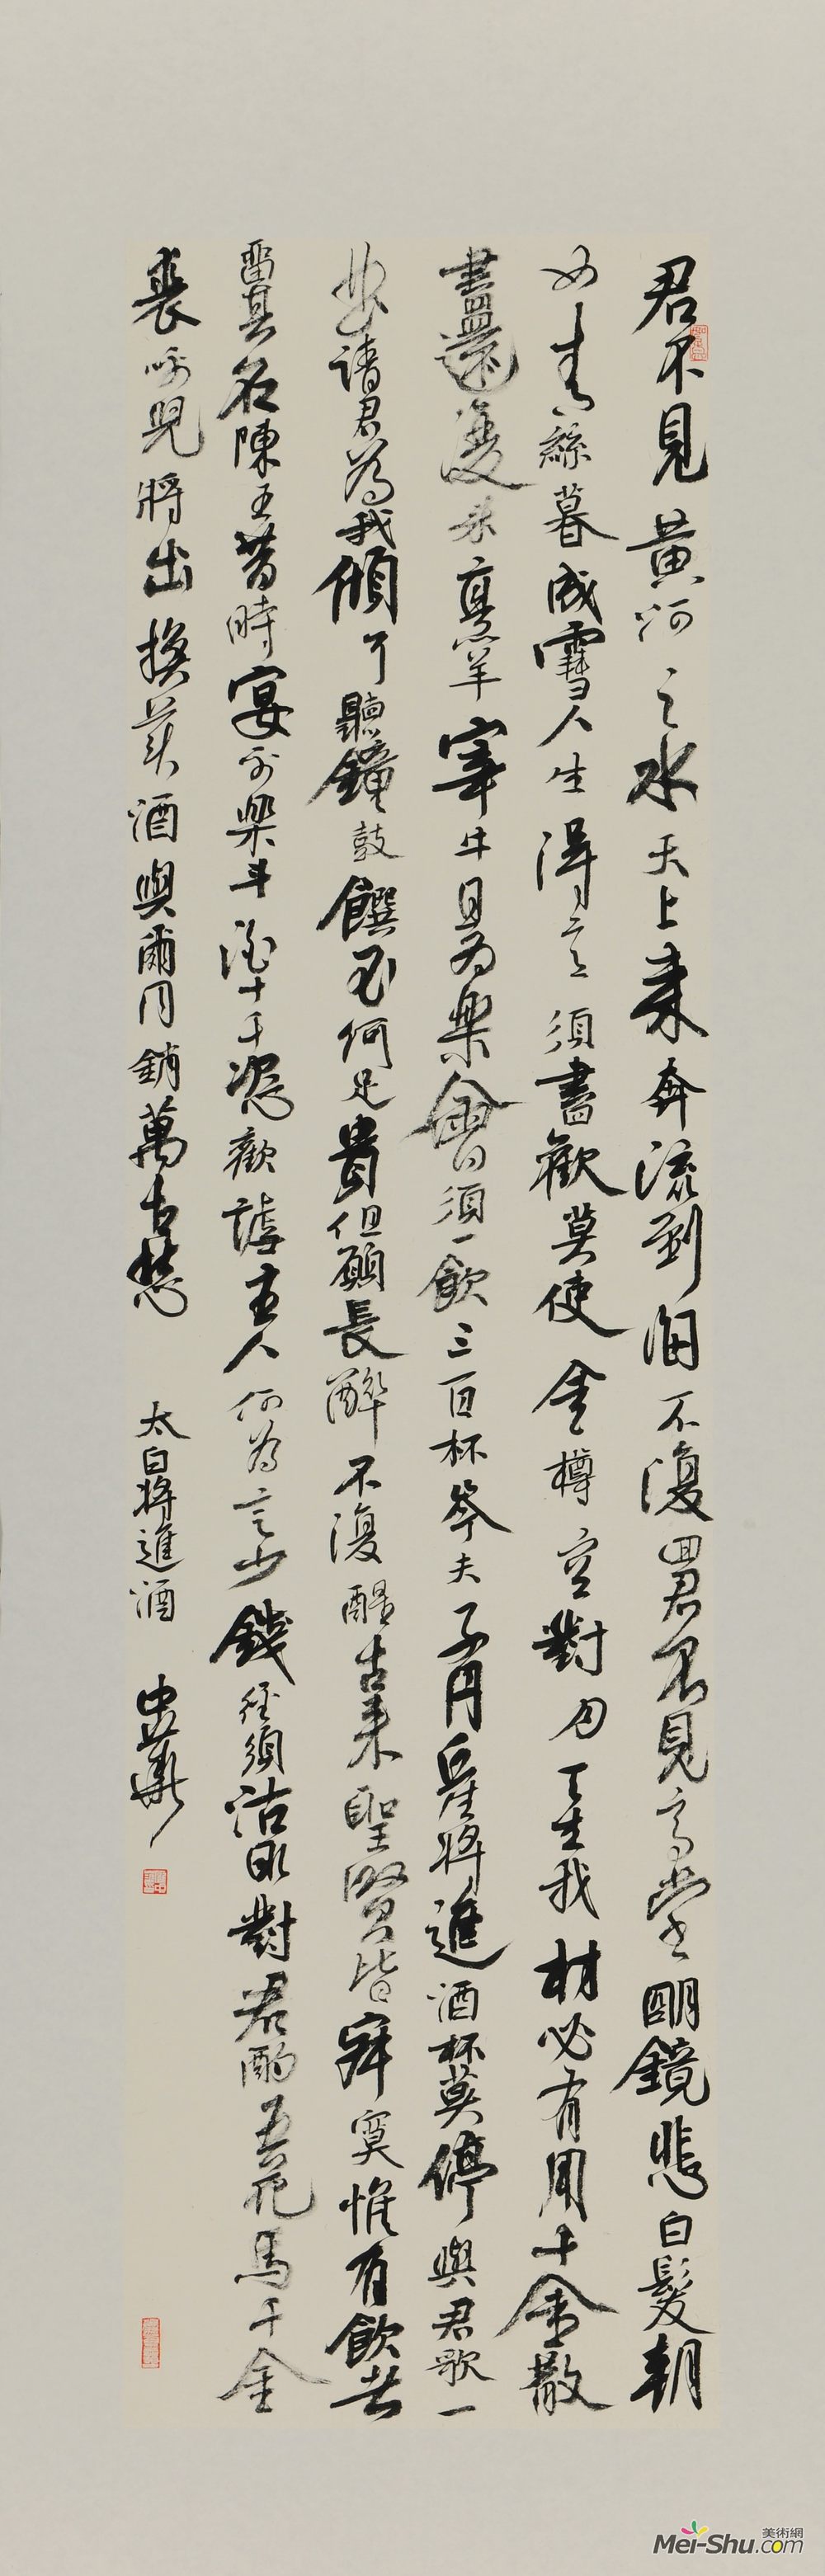 君不見黃河之水天上來奔流到海不復回君不見高堂明鏡悲白髮朝
如青絲暮成雪人生得意須盡歡莫使金樽空對月天生我材必有用千金散
盡還復來烹羊宰牛且為樂會須一飲三百杯岑夫子丹丘生將進酒杯莫停與君歌一
曲請君為我傾耳聽鐘鼓饌玉何足貴但願長醉不復醒古來聖賢皆寂寞惟有飲者
留其名陳王昔時宴平樂斗酒十千恣歡謔主人何為言少錢徑須沽取對君酌五花馬千金
裘呼兒將出換美酒與爾同銷萬古愁 太白將進酒
美術網
Mei-Shu.com